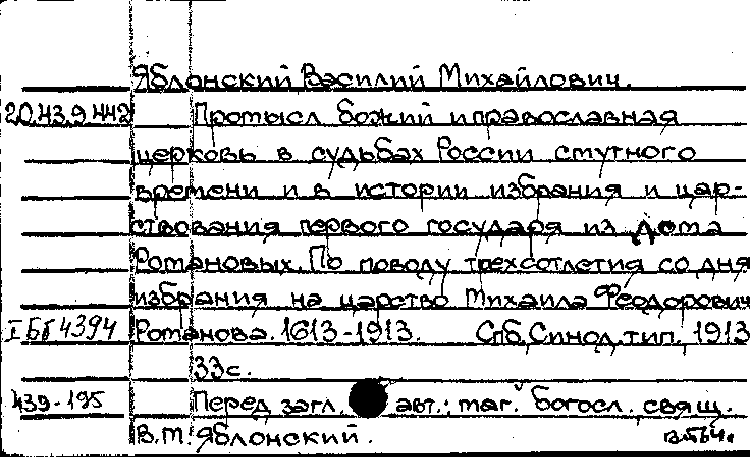 Яблонский Василий Михайлович.
20.43.9.442 Промысл божий и православная
церковь в судьбах России смутного
времени и в истории избрания и цар-
ствования первого государя из дома
Романовых. По поводу трехсотлетия со дня
избрания на царство Михаила Феодорович
I Бб 4394 Романова. 1613-1913. Спб, Синод. тип. 1913
33с.
439-195 Перед загл. авт.: маг. богосл. свящ.
В.М. Яблонский.